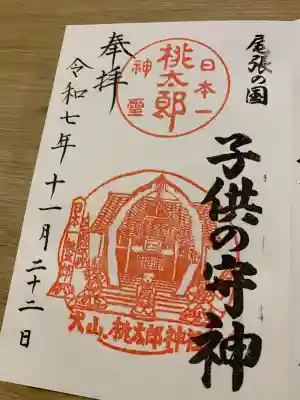 尾張の国
子供の守神
日本一
桃太郎
神霊
奉拝
令和七年十一月二十二日
犬山・桃太郎神社